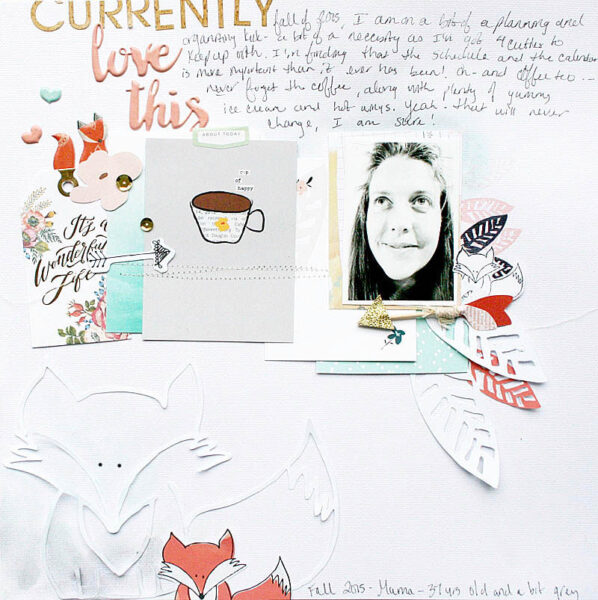 CURRENTLY
love
this
fall of 2015, I am on a bit of a planning and
organizing kick - a bit of a necessity as I've got 4 cuties to
keep up with. I'm finding that the schedule and the calendar
is more important than it ever has been! Oh - and coffee too...
never forget the coffee, along with plenty of yummy
ice cream and hot wings. Yeah - that will never
change, I am sure!
ABOUT TODAY
cup
of
happy
It's a
Wonderful
Life
Fall 2015 - Mama - 37 yrs old and a bit grey